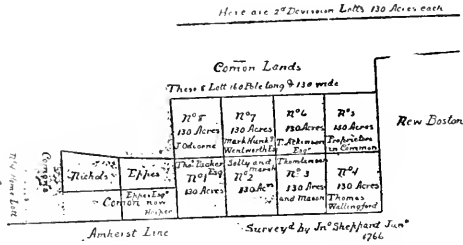 Here are 2d Devision Lotts 130 Acres each
Comon Lands
These 8 Lott 160 Pole long & 130 wide
No 8
130 Acres
J. Odiorne
No 7
130 Acres
Mark Hunkg
Wentworth Esq
No 6
130 Acres
T. Atkinson
Esqr
No 5
130 Acres
Proprietors
in Common
New Boston
Comons
Nichols
Eppes
Thos Packer
Esq
No 1
130 Acres
Solly and
Marsh
No 2
130 Acrs
Thomlinson
No 3
130 Acres
and Mason
No 4
130 Acres
Thomas
Wallingford
Eppes Esqr
Comon now
Amherst Line
Survey'd by Jno Sheppard Junr
1766